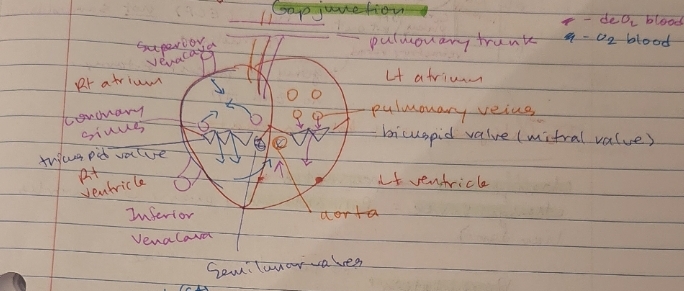 Gap junction
- deO2 blood
- O2 blood
Superior
venacava
pulmonary trunk
Rt atrium
Lt atrium
coronary
sinus
pulmonary veins
bicuspid valve (mitral valve)
tricuspid valve
Rt
ventricle
Lt ventricle
Inferior
venacava
aorta
Semilunar valves